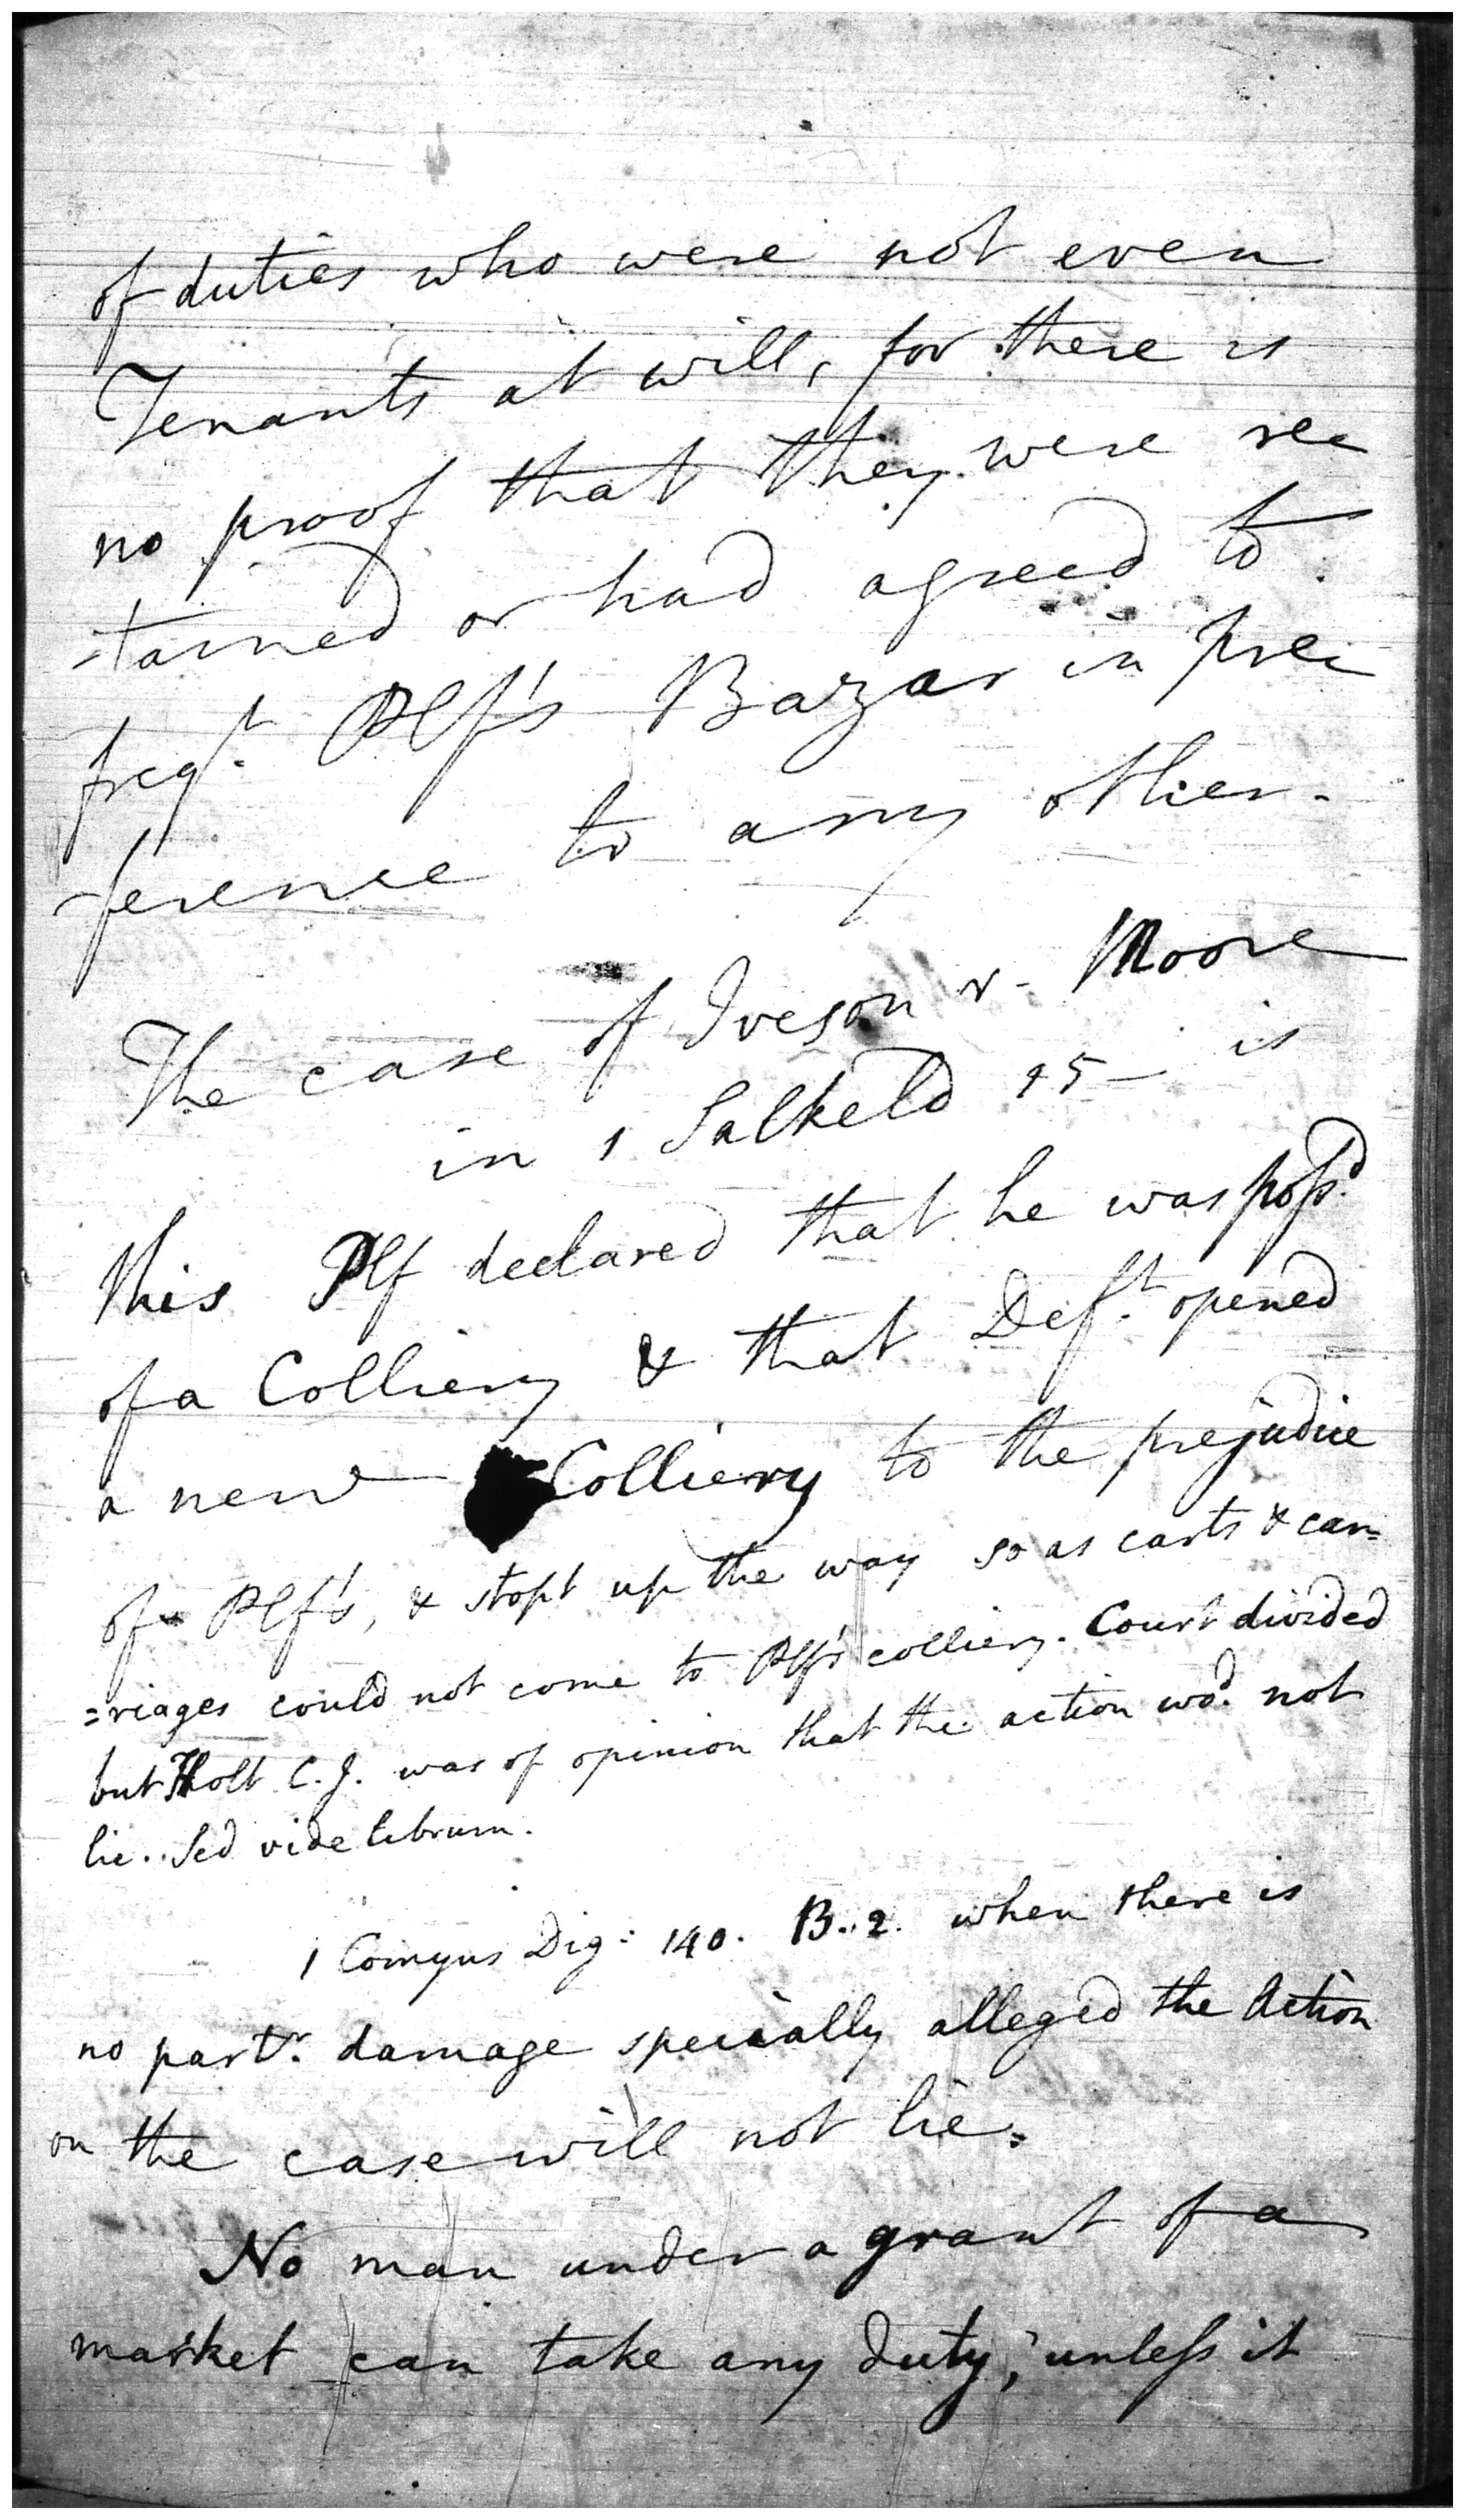 of duties who were not even
Tenants at will, for there is
no proof that they were re
-tained or had agreed to
freqt. Plf's Bazar in pre
-ference to any other.
The case of Iveson v. Moore
in 1 Salkeld 15 - is
this Plf declared that he was possd.
of a Colliery & that Deft. opened
a new Colliery to the prejudice
of Plf's, & stopt up the way so as carts & car=
=riages could not come to Plf's colliery. Court divided
but Holt C.J. was of opinion that the action wod. not
lie.. Sed vide librum.
1 Comyns Dig: 140. B..2. when there is
no partr. damage specially alleged the Action
on the case will not lie.
No man under a grant of a
market can take any duty, unless it